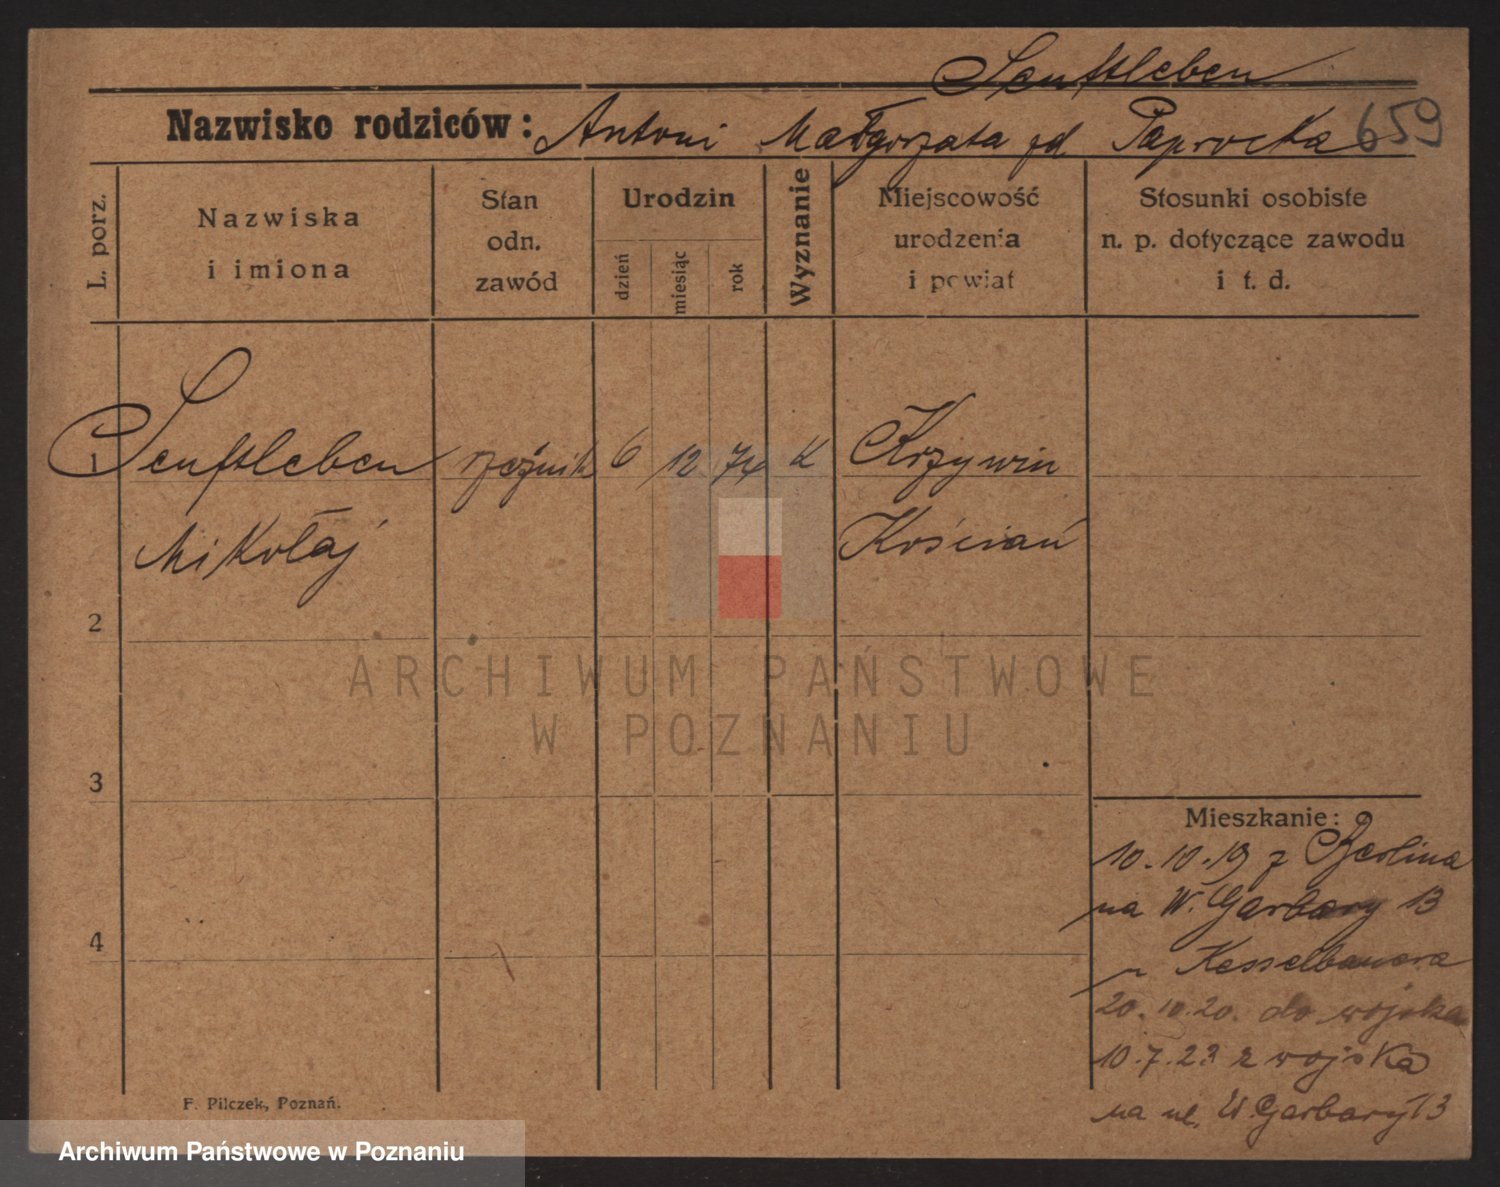 Senftleben
Nazwisko rodziców: Antoni Małgorzata zd Paprocka 659
L. porz.
Nazwiska
i imiona
Stan
odn.
zawód
Urodzin
dzień
miesiąc
rok
Wyznanie
Miejscowość
urodzenia
i powiat
Stosunki osobiste
n. p. dotyczące zawodu
i t. d.
1 Senftleben rzeźnik 6 12 74 K Krzywin
Mikołaj Kościań
2
ARCHIWUM PAŃSTWOWE
W POZNANIU
3
Mieszkanie:
10.10.19 z Berlina
na W. Garbary 13
u Kesselbauera
4
20.10.20. do wojska
10.7.23 z wojska
na ul. W. Garbary 13
F. Pilczek, Poznań.
Archiwum Państwowe w Poznaniu